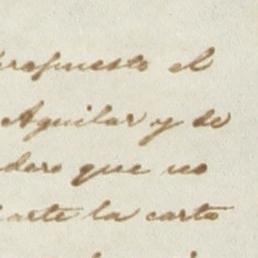 propuesto el
Aguilar y de
dero que no
parte la carta